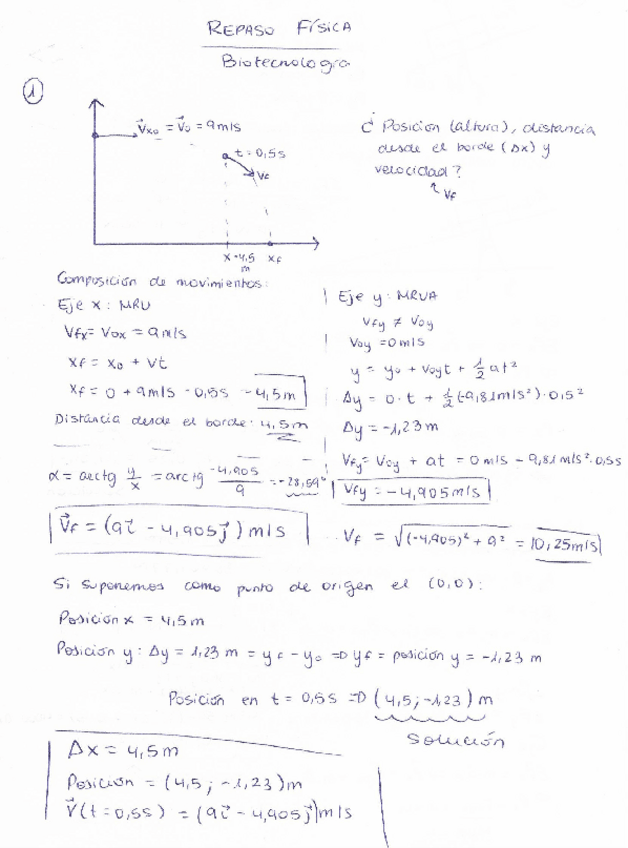 REPASO FÍSICA
Biotecnología
1
V⃗x₀ = V⃗₀ = 9m/s
t = 0,5s
Vf
x = 4,5
m
xf
¿ Posición (altura), distancia
desde el borde (Δx) y
velocidad?
Vf
Composición de movimientos:
Eje x : MRU
Vfx = Vox = 9m/s
xf = x₀ + vt
xf = 0 + 9m/s · 0,5s = 4,5m
Distancia desde el borde: 4,5m
Eje y : MRVA
Vfy ≠ Voy
Voy = 0m/s
y = y₀ + Voyt + 1/2 at²
Δy = 0·t + 1/2 (-9,81m/s²)·0,5²
Δy = -1,23m
Vfy = Voy + at = 0m/s - 9,81m/s²·0,5s
Vfy = -4,905m/s
α = arctg y/x = arctg -4,905/9 = -28,59°
V⃗f = (9i⃗ - 4,905j⃗) m/s
Vf = √((-4,905)² + 9²) = 10,25m/s
Si suponemos como punto de origen el (0,0):
Posición x = 4,5m
Posición y: Δy = 1,23 m = yf - y₀ => yf = posición y = -1,23 m
Posición en t = 0,5s => (4,5; -1,23) m
Solución
Δx = 4,5m
Posición = (4,5; -1,23)m
V⃗(t=0,5s) = (9i⃗ - 4,905j⃗)m/s